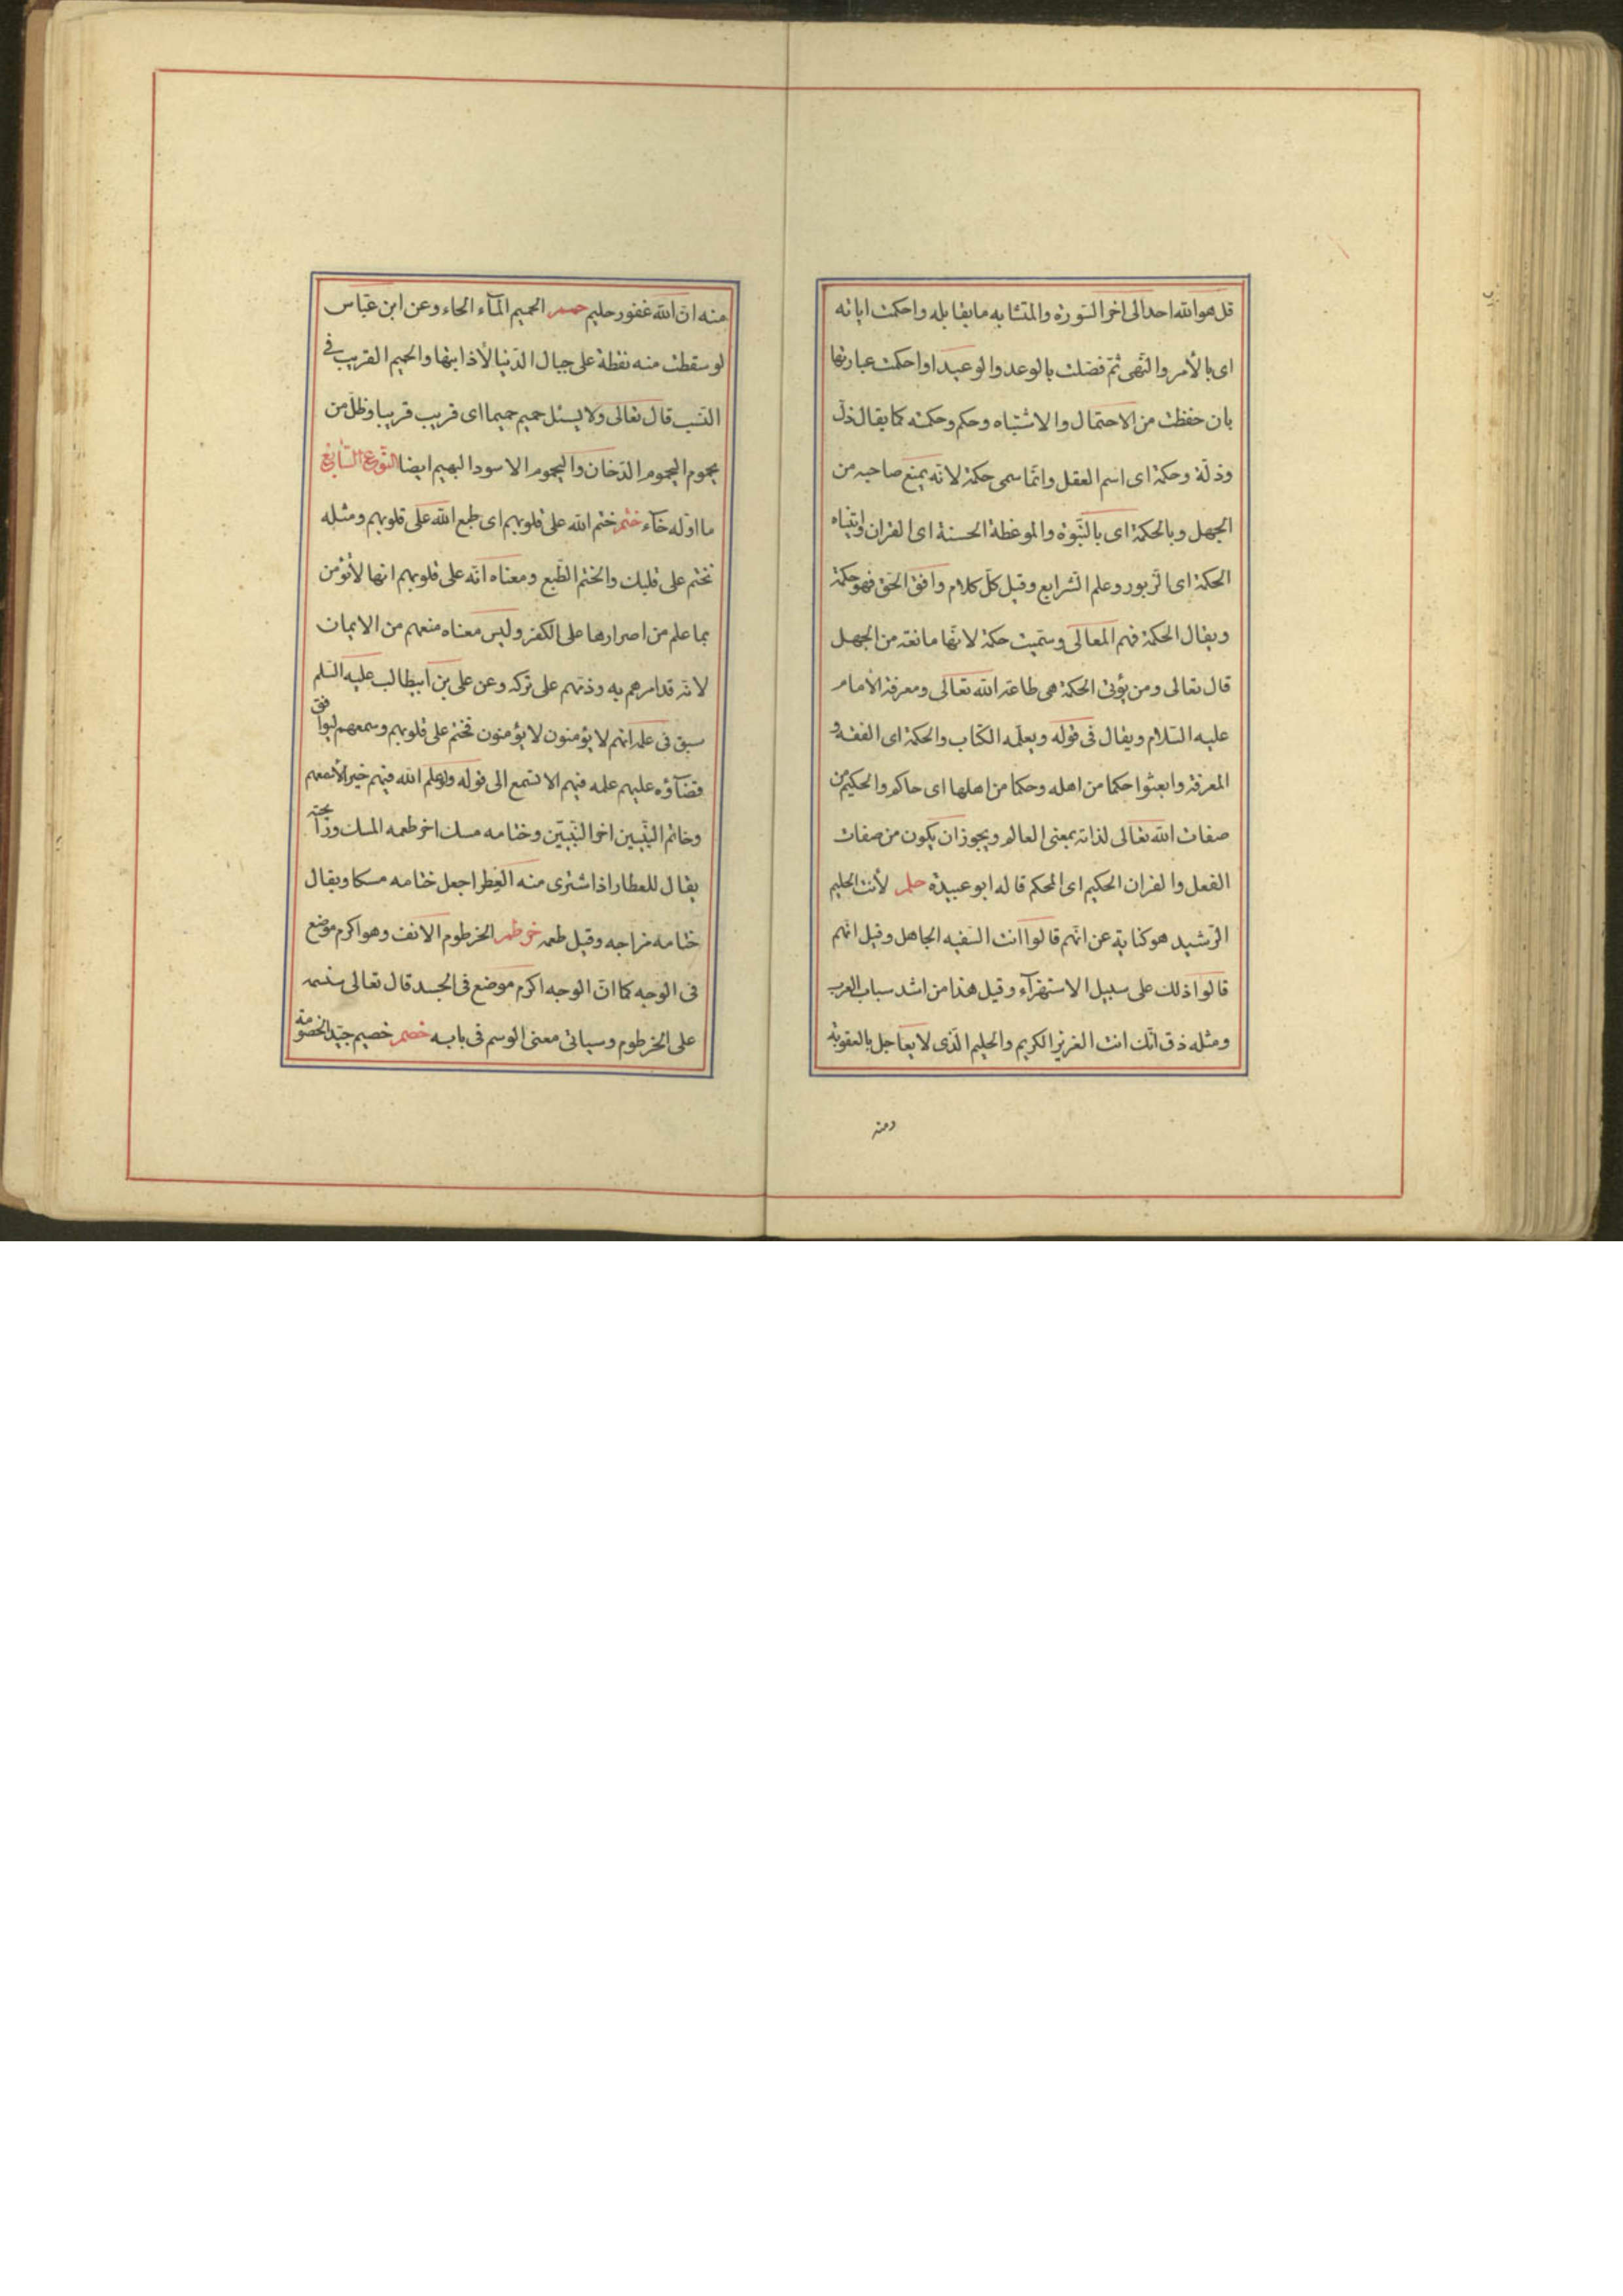 قل هو الله احد الى اخر السّورة والمتشابه ما يقابله واحكمت اياته
اى بالأمر والنّهى ثمّ فصّلت بالوعد والوعيد او احكمت عبارتها
بان حفظت من الاحتمال والاشتباه وحكم وحكمة كما يقال ذلّ
وذلّة وحكمة اى اسم العقل وانّما سمى حكمة لانّه يمنع صاحبه من
الجهل وبالحكمة اى بالنّبوة والموعظة الحسنة اى القران واتيناه
الحكمة اى الزّبور وعلم الشّرايع وقيل كلّ كلام وافق الحقّ فهو حكمة
ويقال الحكمة فهم المعالى وسمّيت حكمة لانّها مانعة من الجهل
قال تعالى ومن يؤتى الحكمة هى طاعة الله تعالى ومعرفة الأمام
عليه السّلام ويقال فى قوله ويعلّمه الكتاب والحكمة اى الفقه و
المعرفة وابعثوا حكما من اهله وحكما من اهلها اى حاكم والحكيم من
صفات الله تعالى لذاته بمعنى العالم ويجوز ان يكون من صفات
الفعل والقران الحكيم اى المحكم قاله ابو عبيدة حلم لأنت الحليم
الرّشيد هو كناية عن انّهم قالوا انت السّفيه الجاهل وقيل انّهم
قالوا ذلك على سبيل الاستهزآء وقيل هذا من اشد سباب العرب
ومثله ذق انّك انت العزيز الكريم والحليم الّذى لا يعاجل بالعقوبة
ومنه
منه انّ الله غفور حليم حمم الحميم المآء الحاء وعن ابن عبّاس
لو سقطت منه نقطة على جبال الدّنيا لأذابتها والحميم القريب فى
النّسب قال تعالى ولا يسئل حميم حميما اى قريب قريبا وظلّ من
يحموم اليحموم الدّخان واليحموم الاسود البهيم ايضا النّوع السّابع
ما اوّله خآء ختم ختم الله على قلوبهم اى طبع الله على قلوبهم ومثله
نختم على قلبك والختم الطّبع ومعناه انّه على قلوبهم انها لأتؤمن
بما علم من اصرارها على الكفر وليس معناه منعهم من الايمان
لانّه قد امرهم به وذمّهم على تركه وعن على بن ابيطالب عليه السّلم
سبق فى علمه انّهم لا يؤمنون لا يؤمنون فختم على قلوبهم وسمعهم ليوافق
قضآؤه عليهم علمه فيهم الا تسمع الى قوله ولو علم الله فيهم خيرا لأسمعهم
وخاتم النّبيّين اخر النّبيّين وختامه مسك اخر طعمه المسك ورآئحته
يقال للعطار اذا اشترى منه العطر اجعل ختامه مسكا ويقال
ختامه مزاجه وقيل طعمه خرطم الخرطوم الانف وهو اكرم موضع
فى الوجه كما انّ الوجه اكرم موضع فى الجسد قال تعالى سنسمه
على الخرطوم وسياتى معنى الوسم فى بابه خصم خصيم جيّد الخصومة